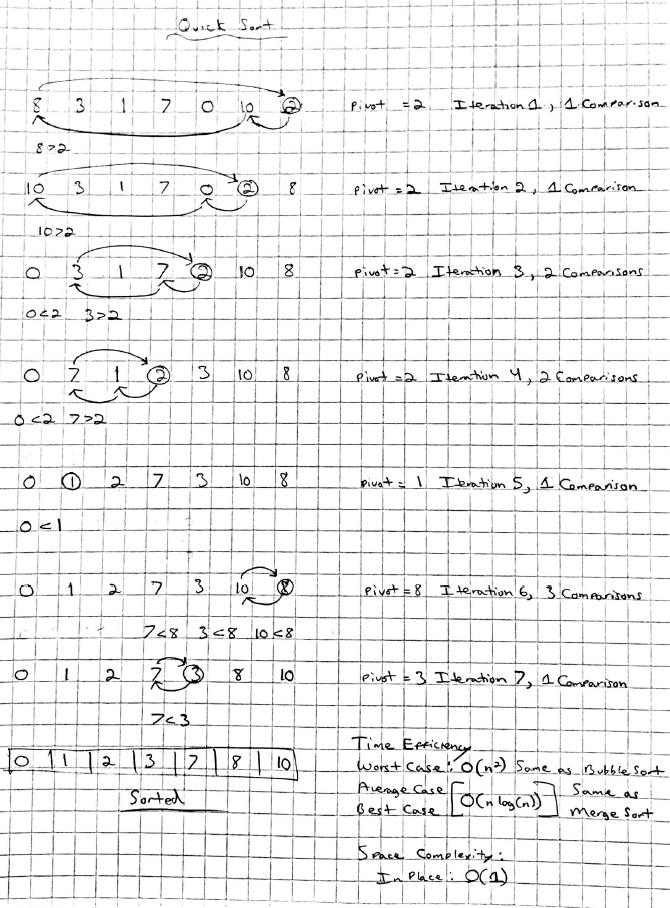 Quick Sort
8 3 1 7 0 10 2 Pivot = 2 Iteration 1, 1 Comparison
8>2
10 3 1 7 0 2 8 Pivot = 2 Iteration 2, 1 Comparison
10>2
0 3 1 7 2 10 8 Pivot = 2 Iteration 3, 2 Comparisons
0<2 3>2
0 7 1 2 3 10 8 Pivot = 2 Iteration 4, 2 Comparisons
0<2 7>2
0 1 2 7 3 10 8 Pivot = 1 Iteration 5, 1 Comparison
0<1
0 1 2 7 3 10 8 Pivot = 8 Iteration 6, 3 Comparisons
7<8 3<8 10<8
0 1 2 7 3 8 10 Pivot = 3 Iteration 7, 1 Comparison
7<3
0 1 2 3 7 8 10
Sorted
Time Efficiency
Worst Case: O(n²) Same as Bubble Sort
Average Case
Best Case
[O(n log(n))]
Same as
Merge Sort
Space Complexity:
In Place: O(1)